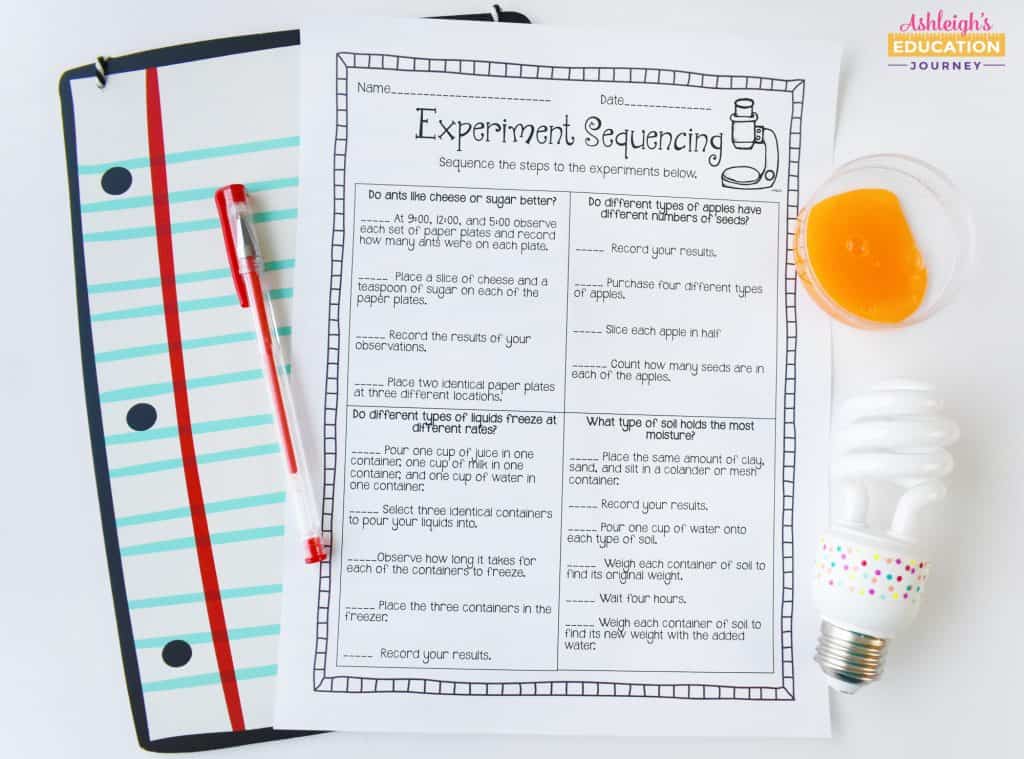 Ashleigh's
EDUCATION
JOURNEY
Name_________________________ Date______________
Experiment Sequencing
Sequence the steps to the experiments below.
Do ants like cheese or sugar better?
_____ At 9:00, 12:00, and 5:00 observe
each set of paper plates and record
how many ants were on each plate.
_____ Place a slice of cheese and a
teaspoon of sugar on each of the
paper plates.
_____ Record the results of your
observations.
_____ Place two identical paper plates
at three different locations.
Do different types of apples have
different numbers of seeds?
_____ Record your results.
_____ Purchase four different types
of apples.
_____ Slice each apple in half
_____ Count how many seeds are in
each of the apples.
Do different types of liquids freeze at
different rates?
_____ Pour one cup of juice in one
container, one cup of milk in one
container, and one cup of water in
one container.
_____ Select three identical containers
to pour your liquids into.
_____Observe how long it takes for
each of the containers to freeze.
_____ Place the three containers in the
freezer.
_____ Record your results.
What type of soil holds the most
moisture?
_____ Place the same amount of clay,
sand, and silt in a colander or mesh
container.
_____ Record your results.
_____ Pour one cup of water onto
each type of soil.
_____ Weigh each container of soil to
find its original weight.
_____ Wait four hours.
_____ Weigh each container of soil to
find its new weight with the added
water.